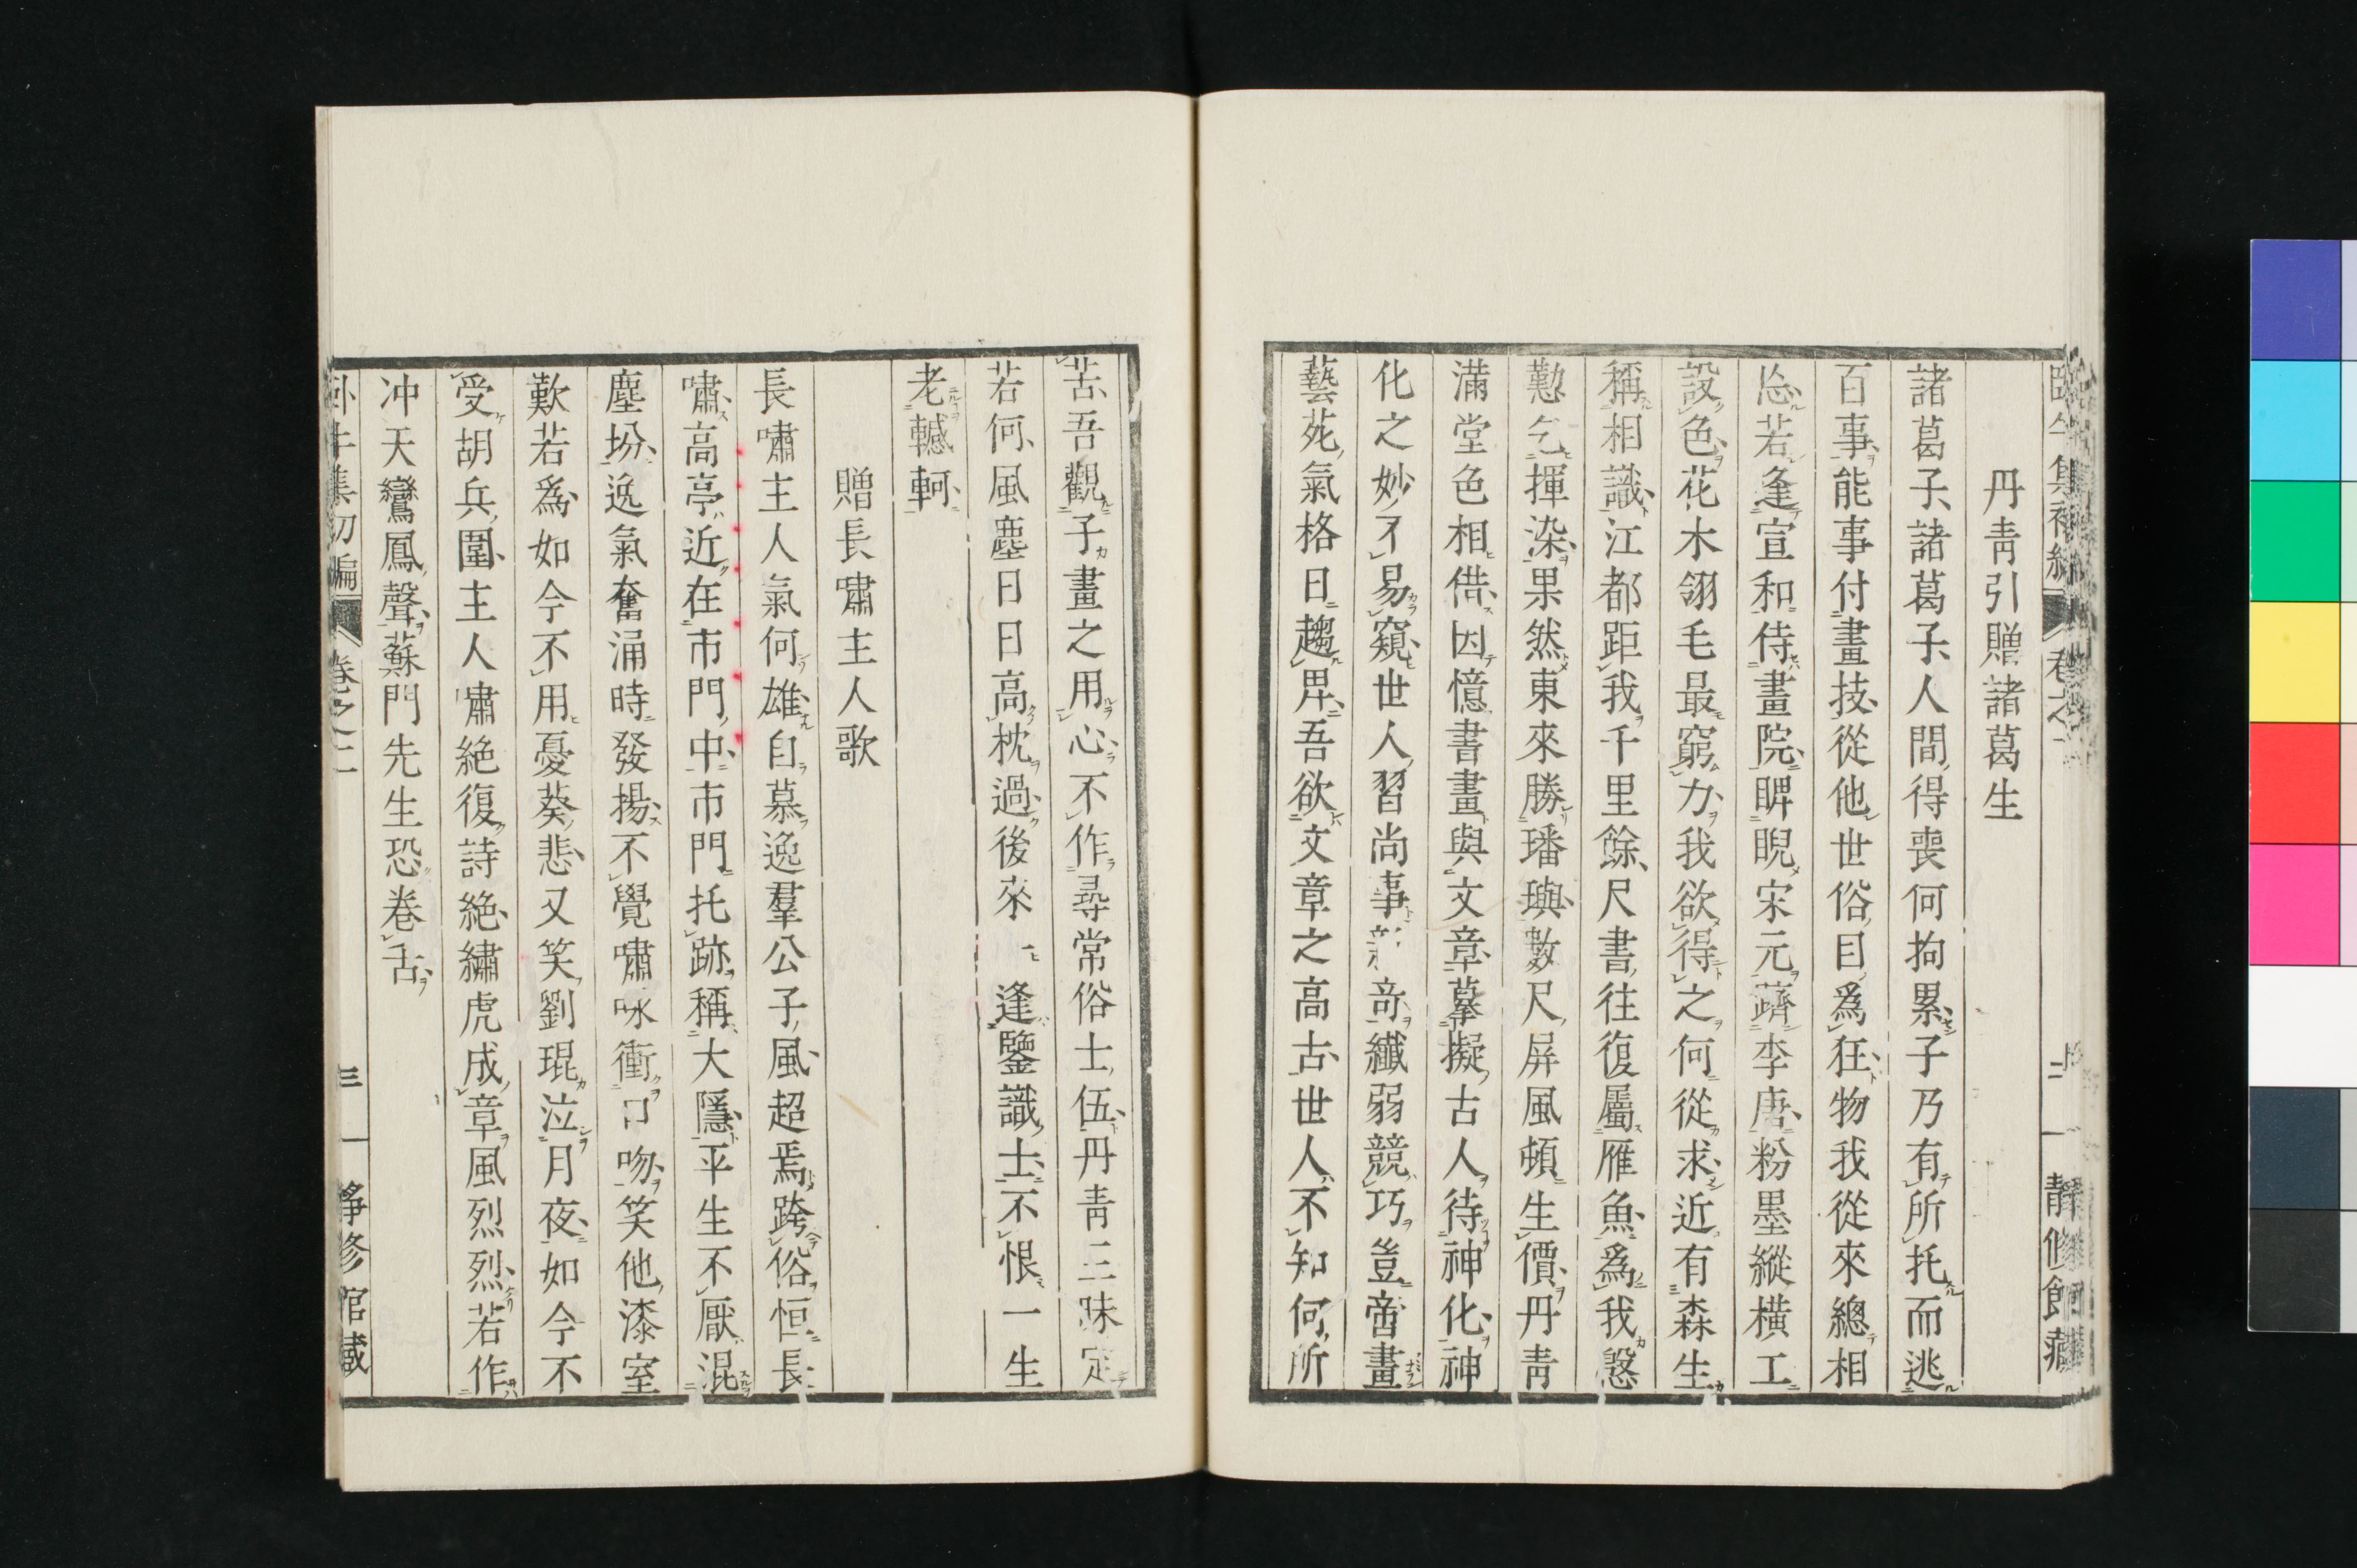 丹青引贈諸葛生
諸葛子諸葛子人間得喪何拘累子乃有所托而逃
百事能事付畫技從他世俗目爲狂物我從來總相
忘若逢宣和侍畫院睥睨宋元躋李唐粉墨縱橫工
設色花木翎毛最窮力我欲得之何從求近有森生
稱相識江都距我千里餘尺書往復屬雁魚爲我慇
懃乞揮染果然東來勝璠璵數尺屏風頓生價丹青
滿堂色相借因憶書畫與文章摹擬古人待神化神
化之妙不易窺世人習尚事新奇纖弱競巧豈啻畫
藝苑氣格日趨卑吾欲文章之高古世人不知何所
苦吾觀子畫之用心不作尋常俗士伍丹青三昧定
若何風塵日日高枕過後來一逢鑒識士不恨一生
老轗軻
贈長嘯主人歌
長嘯主人氣何雄自慕逸羣公子風超焉跨俗恒長
嘯高亭近在市門中市門托跡稱大隱平生不厭混
塵坋逸氣奮涌時發揚不覺嘯咏衝口吻笑他漆室
歎若爲如今不用憂葵悲又笑劉琨泣月夜如今不
受胡兵圍主人嘯絕復詩絕繡虎成章風烈烈若作
冲天鸞鳳聲蘇門先生恐卷舌
卧牛集初編 卷之二 三 靜修館藏